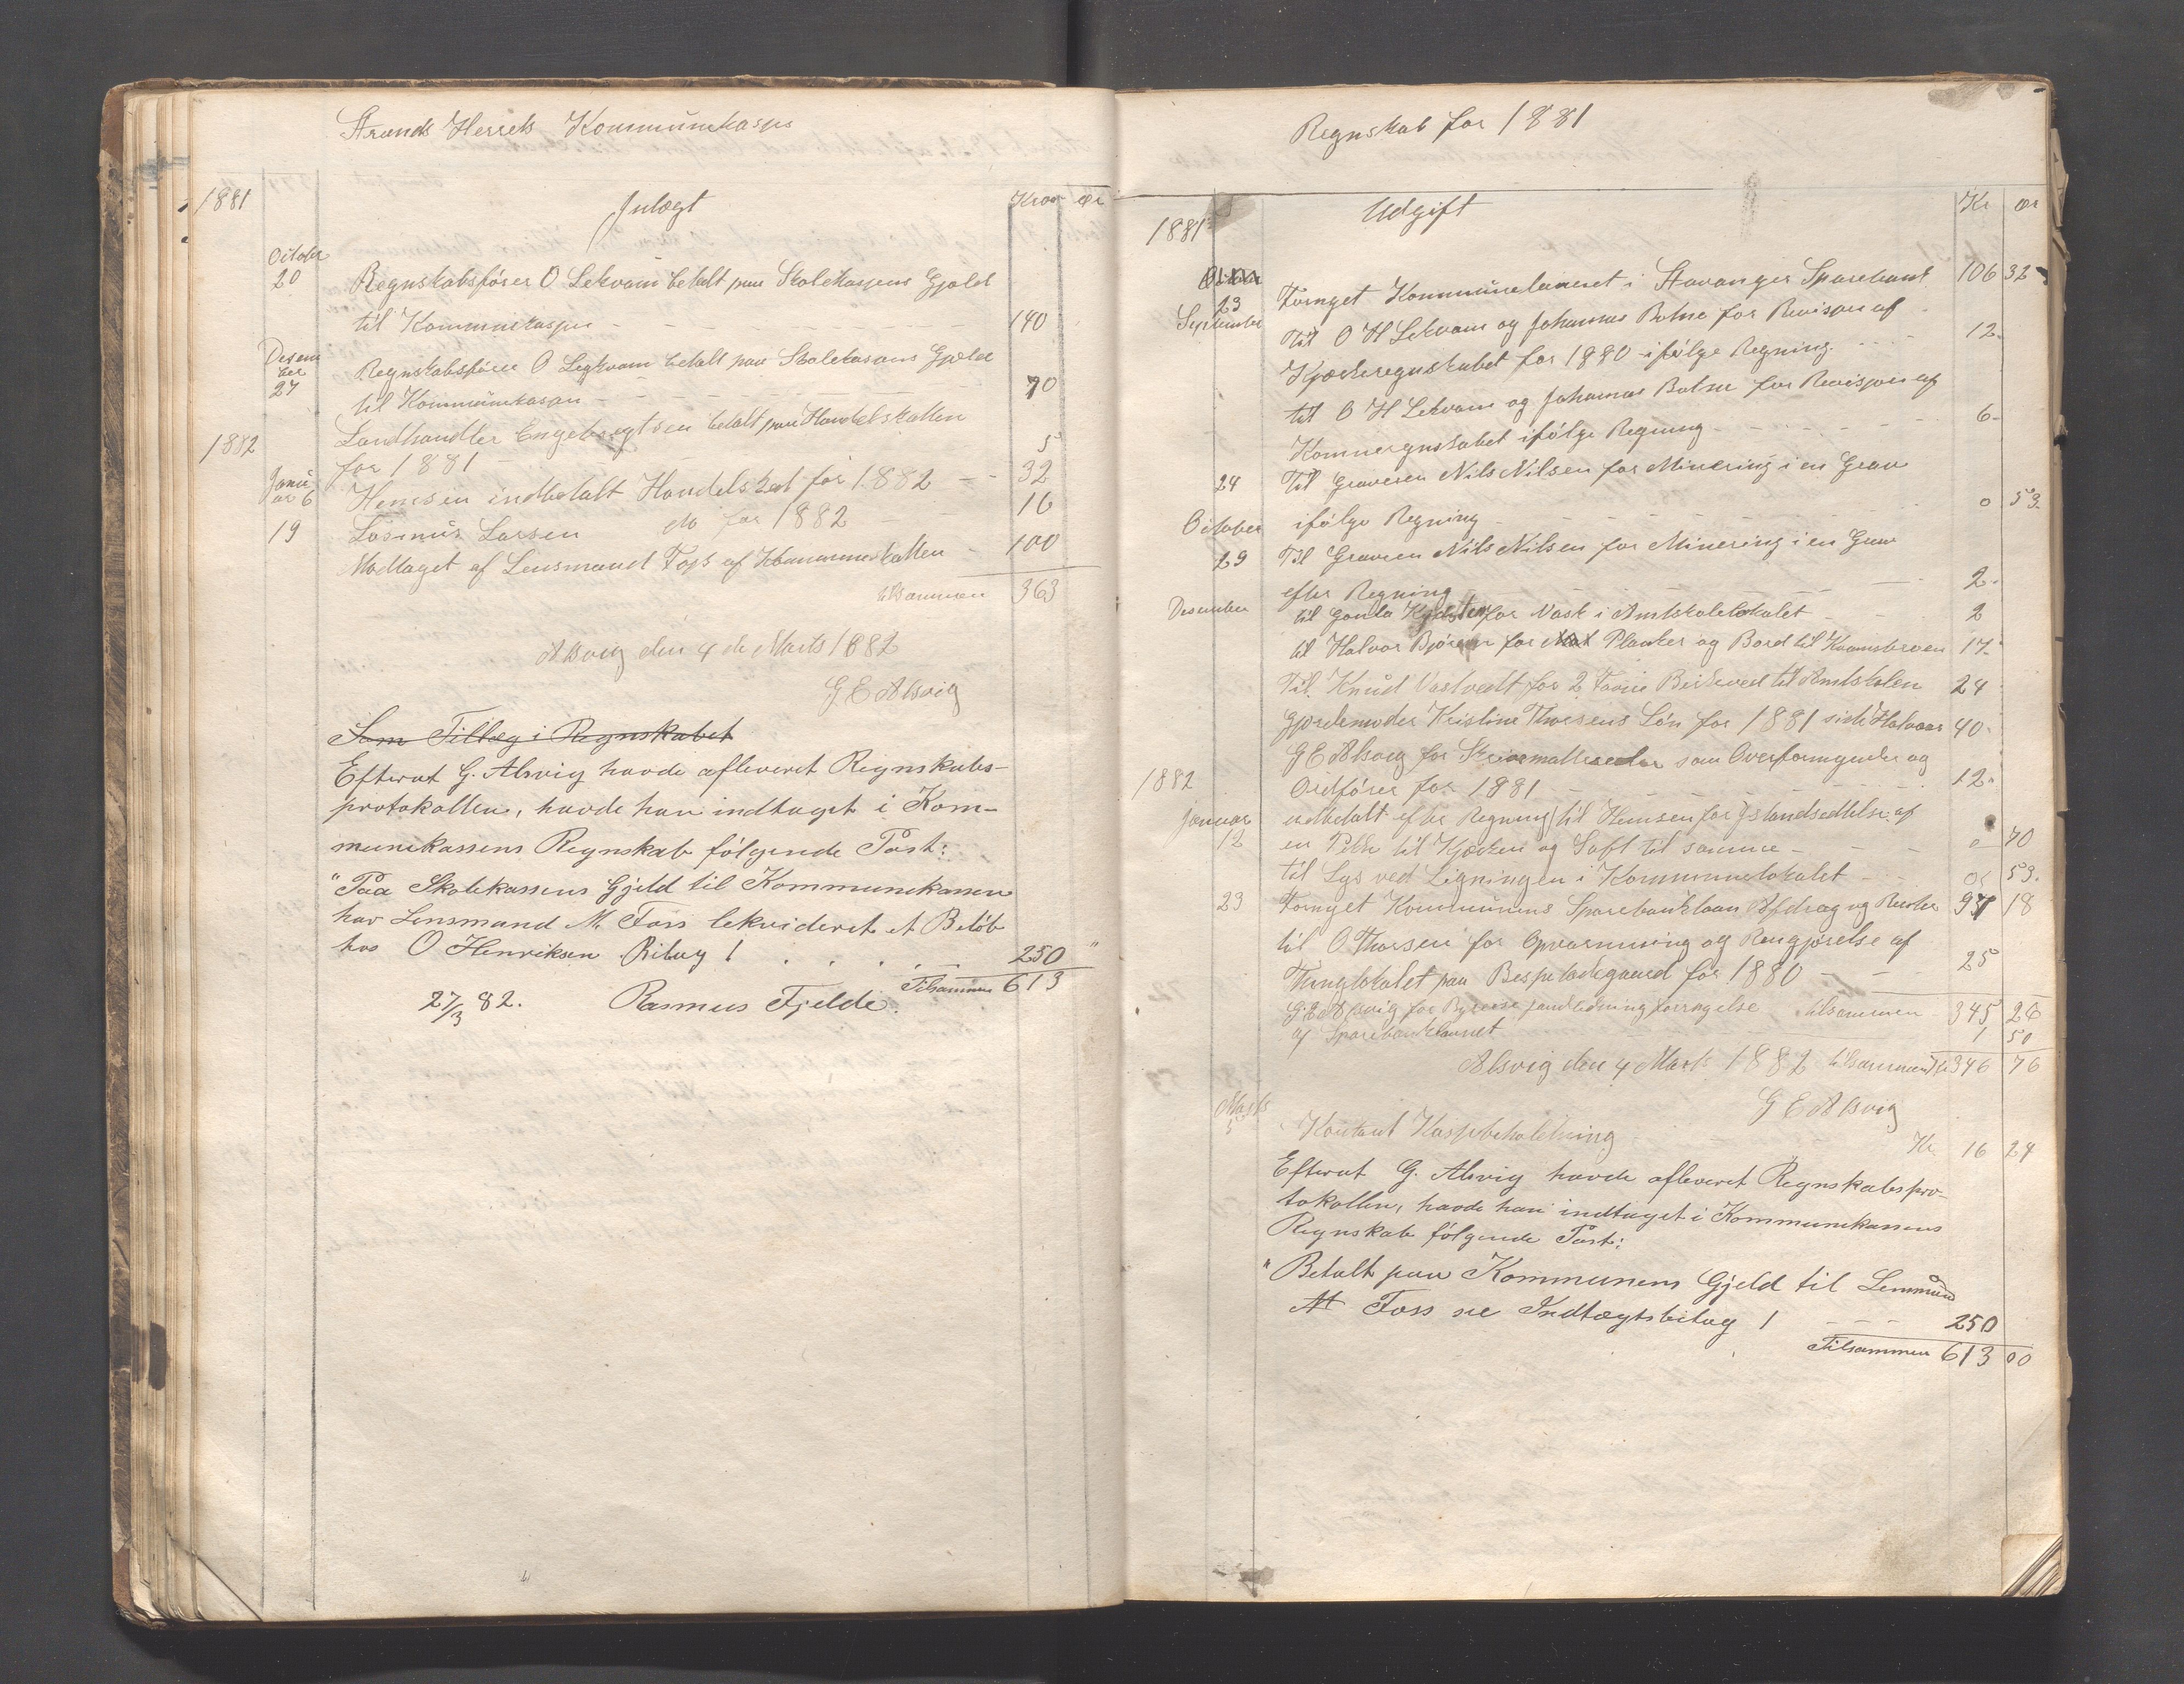 Strands Herreds Kommunekasses
1881
Indtægt
Kroner ør
October
20 Regnskabsfører O Lekvam betalt paa Skolekassens Gjæld
til Kommunekassen - - - 140
Desem
ber
27 Regnskabsfører O Legkvam betalt paa Skolekasens Gjæld
til Kommunekasen - - - 70
Landhandler Engebregtsen betalt paa Handelskatten
1882
for 1881 - 5
Janu
ar 6 Hemsen indbetalt Handelskat for 1882 - - 32
19 Lasinus Larsen do for 1882 - - 16
Modtaget af Lensmand Foss af Kommuneskatten - 100
tilsammen 363
Alsvig den 4de Marts 1882
G E Alsvig
Som Tillæg i Regnskabet
Efterat G. Alsvig havde afleveret Regnskabs-
protokollen, havde han indtaget i Kom-
munekassens Regnskab følgende Post:
"Paa Skolekassens Gjeld til Kommunekassen
har Lensmand M. Foss lekvideret et Beløb
hos O Henriksen Bilag 1 . . . . 250 "
Tilsammen 613
27/3 82. Rasmus Fjelde.
Regnskab for 1881
1881
Udgift
Kr ør
23 Fornyet Kommunelaanet i Stavanger Sparebank 106 32
September Til O H Lekvam og Johannes Botne for Revisjon af
Kjørkeregnskabet for 1880 ifølge Regning. - - - 12.
til O H Lekvam og Johannes Botne for Revisjon af
Komneregnskabet ifølge Regning - - - 6-
24 Til Graveren Nils Nilsen for Minering i en Grav
October ifølge Regning - - - 0 53.
29 Til Graveren Nils Nilsen for Minering i en Grav
efter Regning - - - 2.
Desember til Gonla for Vask i Amtskolelokalet - 2
til Halvor for Planker og Bord til 17-
Til Knud Vastvedt for 2 Favne Birkeved til Amtskolen 24
Gjordemoder Kristine Thorsens Løn for 1881 40-
G E Alsvig for som Overformynder og
1882 Ordfører for 1881 - - - 12.
Januar udbetalt efter Regning til Hemsen for Istandsedtelse af
12 en til Kjørken og til samme - - - 0 70
til Lys ved Ligningen i Kommunelokalet - - 0 53.
23 Fornyet Kommunens Sparebanklaan Afdrag og Renter 97 18
til O Thorsen for Opvarmning og Rengjørelse af
Tinglokalet paa for 1880 - - 25
G E Alsvig for Byreise i anledning fornyelse tilsammen 345 26
af Sparebanklaanet - 1 50
Alsvig den 4 Marts 1882 tilsammen Kr 346 76
G E Alsvig
Marts
5 Kontant Kassebeholdning Kr. 16 24
Efterat G. Alsvig havde afleveret Regnskabspro-
tokollen, havde han indtaget i Kommunekassens
Regnskab følgende Post:
"Betalt paa Kommunens Gjeld til Lensmand
M Foss se Indtægtsbilag 1 - - - 250
Tilsammen 613 00